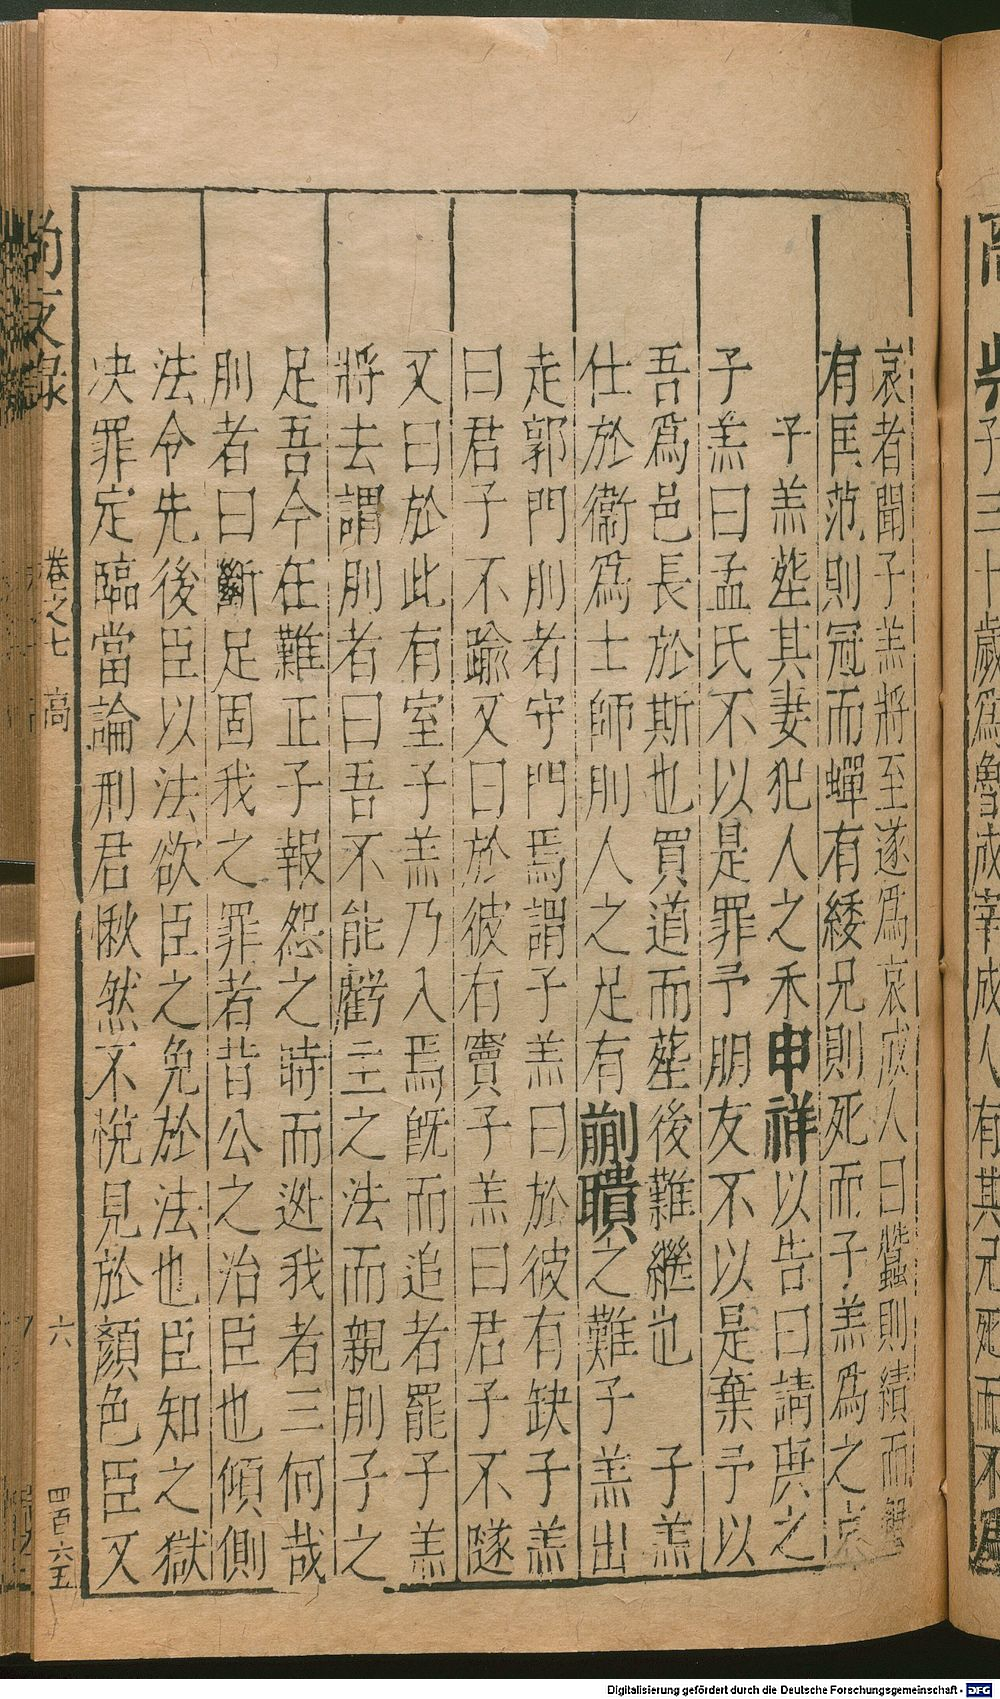 哀者聞子羔將至遂爲哀成人曰蠶則績而蟹
有匡范則冠而蟬有緌兄則死而子羔爲之哀
子羔塟其妻犯人之禾申祥以告曰請庚之
子羔曰孟氏不以是罪予朋友不以是棄予以
吾爲邑長於斯也買道而塟後難繼也 子羔
仕於衞爲士師刖人之足有蒯聵之難子羔出
走郭門刖者守門焉謂子羔曰於彼有缺子羔
曰君子不踰又曰於彼有竇子羔曰君子不隧
又曰於此有室子羔乃入焉旣而追者罷子羔
將去謂刖者曰吾不能虧主之法而親刖子之
足吾今在難正子報怨之時而逃我者三何哉
刖者曰斷足固我之罪者昔公之治臣也傾側
法令先後臣以法欲臣之免於法也臣知之獄
决罪定臨當論刑君愀然不悅見於顏色臣又
尚友錄 卷之七 高 六 四百六五
子三十歲爲魯成宰成人有其兄死而不爲
Digitalisierung gefördert durch die Deutsche Forschungsgemeinschaft - DFG